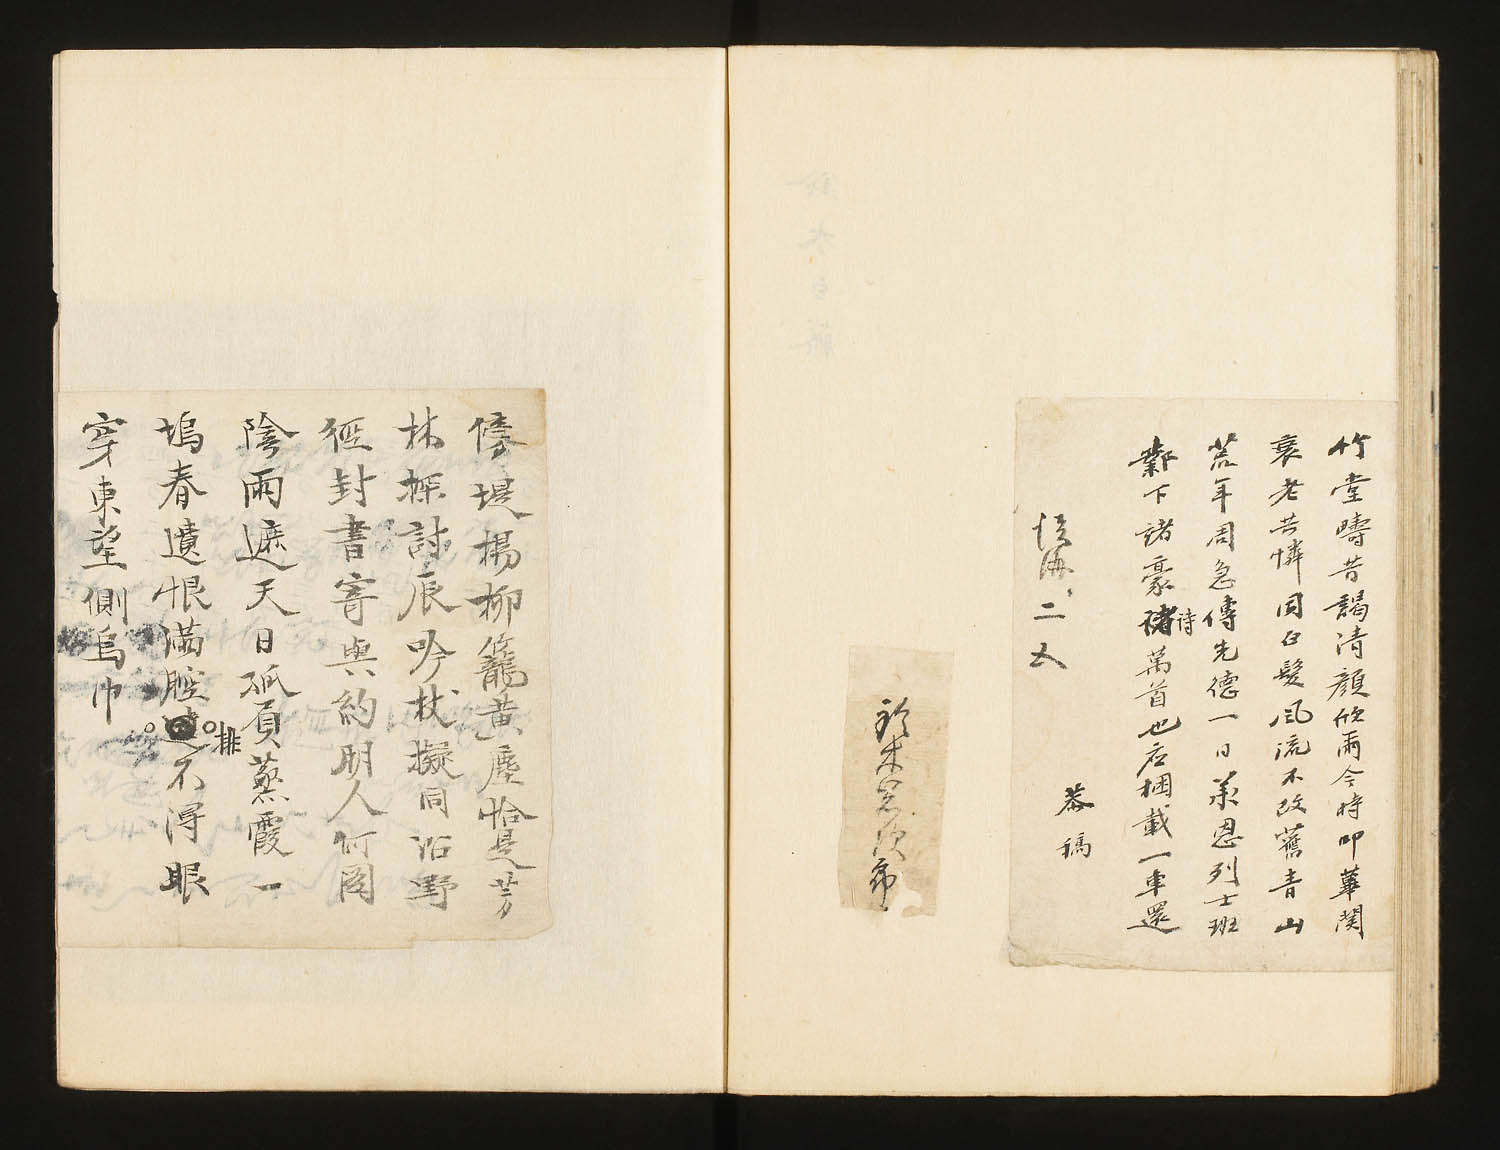 竹堂疇昔謁清顔欣雨今時叩華関
衰老共憐同白髪風流不改舊青山
荒年周急傳先徳一日承恩列士班
鄴下諸豪詩萬首也応捆載一車還
恭稿
二又
鈴木
傍堤楊柳籠黄塵恰是芳
林探討辰吟杖擬同沿野
徑封書寄與約明人何図
陰雨遮天日孤負蒸霞一
塢春遺恨満腔排不得眼
穿東望側烏巾